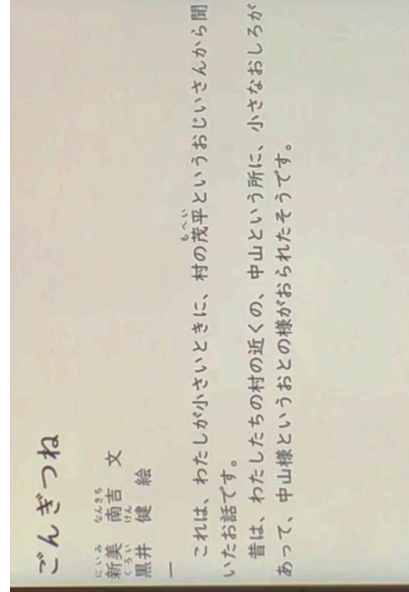 ごんぎつね
新美 南吉 文
にいみ なんきち
黒井 健 絵
くろい けん
一
これは、わたしが小さいときに、村の茂平というおじいさんから聞
もへい
いたお話です。
昔は、わたしたちの村の近くの、中山という所に、小さなおしろが
あって、中山様というおとの様がおられたそうです。